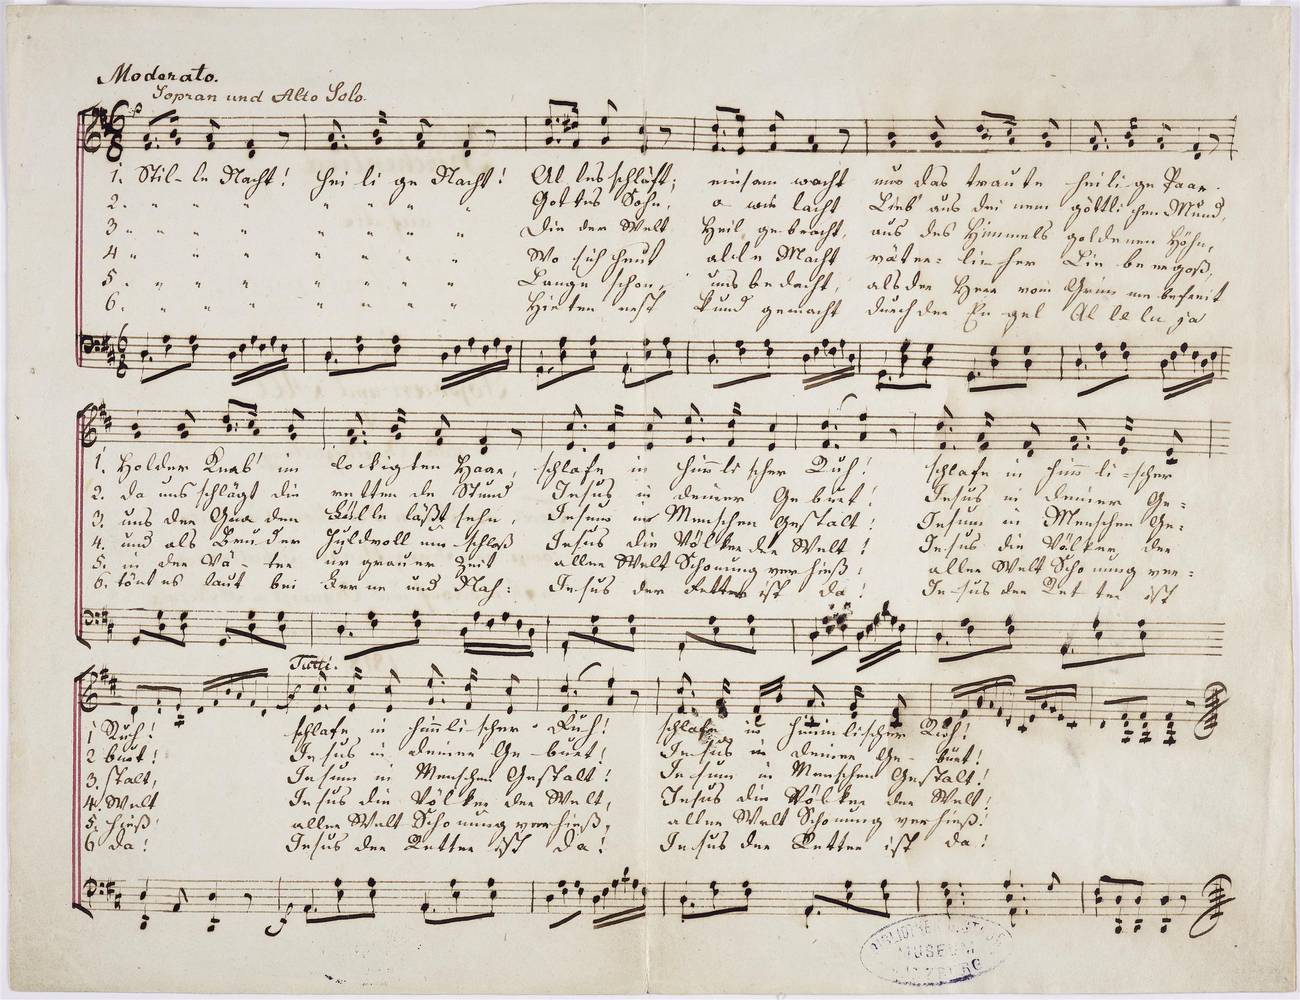 Moderato.
Sopran und Alto Solo.
1. Stil-le Nacht! Hei li ge Nacht! Al les schläft; einsam wacht nur das traute heili ge Paar.
2. " " " " " " " Gottes Sohn, o wie lacht Lieb' aus dei nem göttli chen Mund,
3 " " " " " " " Die der Welt Heil ge-bracht, aus des Himmels goldenen Höhn,
4 " " " " " " " Wo sich heut alle Macht väter= li-cher Lie be ergoß,
5. " " " " " " " Lange schon, uns bedacht, als der Herr vom Grim me befreit
6. " " " " " " " Hirten erst kund gemacht durch der En gel Al le lu ja
1. Holder Knab' im lockigten Haar, schlafe in himli scher Ruh! schlafe in him li-scher
2. da uns schlägt die retten de Stund Jesus in deiner Ge burt! Jesus in deiner Ge=
3. uns der Gna den Fülle läßt sehn, Jesum in Menschen Gestalt! Jesum in Menschen Ge=
4. und als Bru der huldvoll um-schloß Jesus die Völker der Welt! Jesus die Völker der
5. in der Vä-ter ur grauer Zeit aller Welt Schonung ver hieß! aller Welt Scho nung ver=
6. tönt es laut bei Fer ne und Nah: Je-sus der Retter ist da! Je-sus der Ret ter ist
Tutti.
1 Ruh! schlafe in himli scher Ruh! schlafe in himmlischer Ruh!
2 burt! Je sus in deiner Ge-burt! Je sus in deiner Ge-burt!
3. stalt, Je sum in Menschen Gestalt! Je sum in Menschen Gestalt!
4. Welt Jesus die Völker der Welt, Jesus die Völker der Welt!
5. hieß aller Welt Schonung verhieß, aller Welt Schonung verhieß!
6 da! Jesus der Retter ist da! Je sus der Retter ist da!
MUSEUM